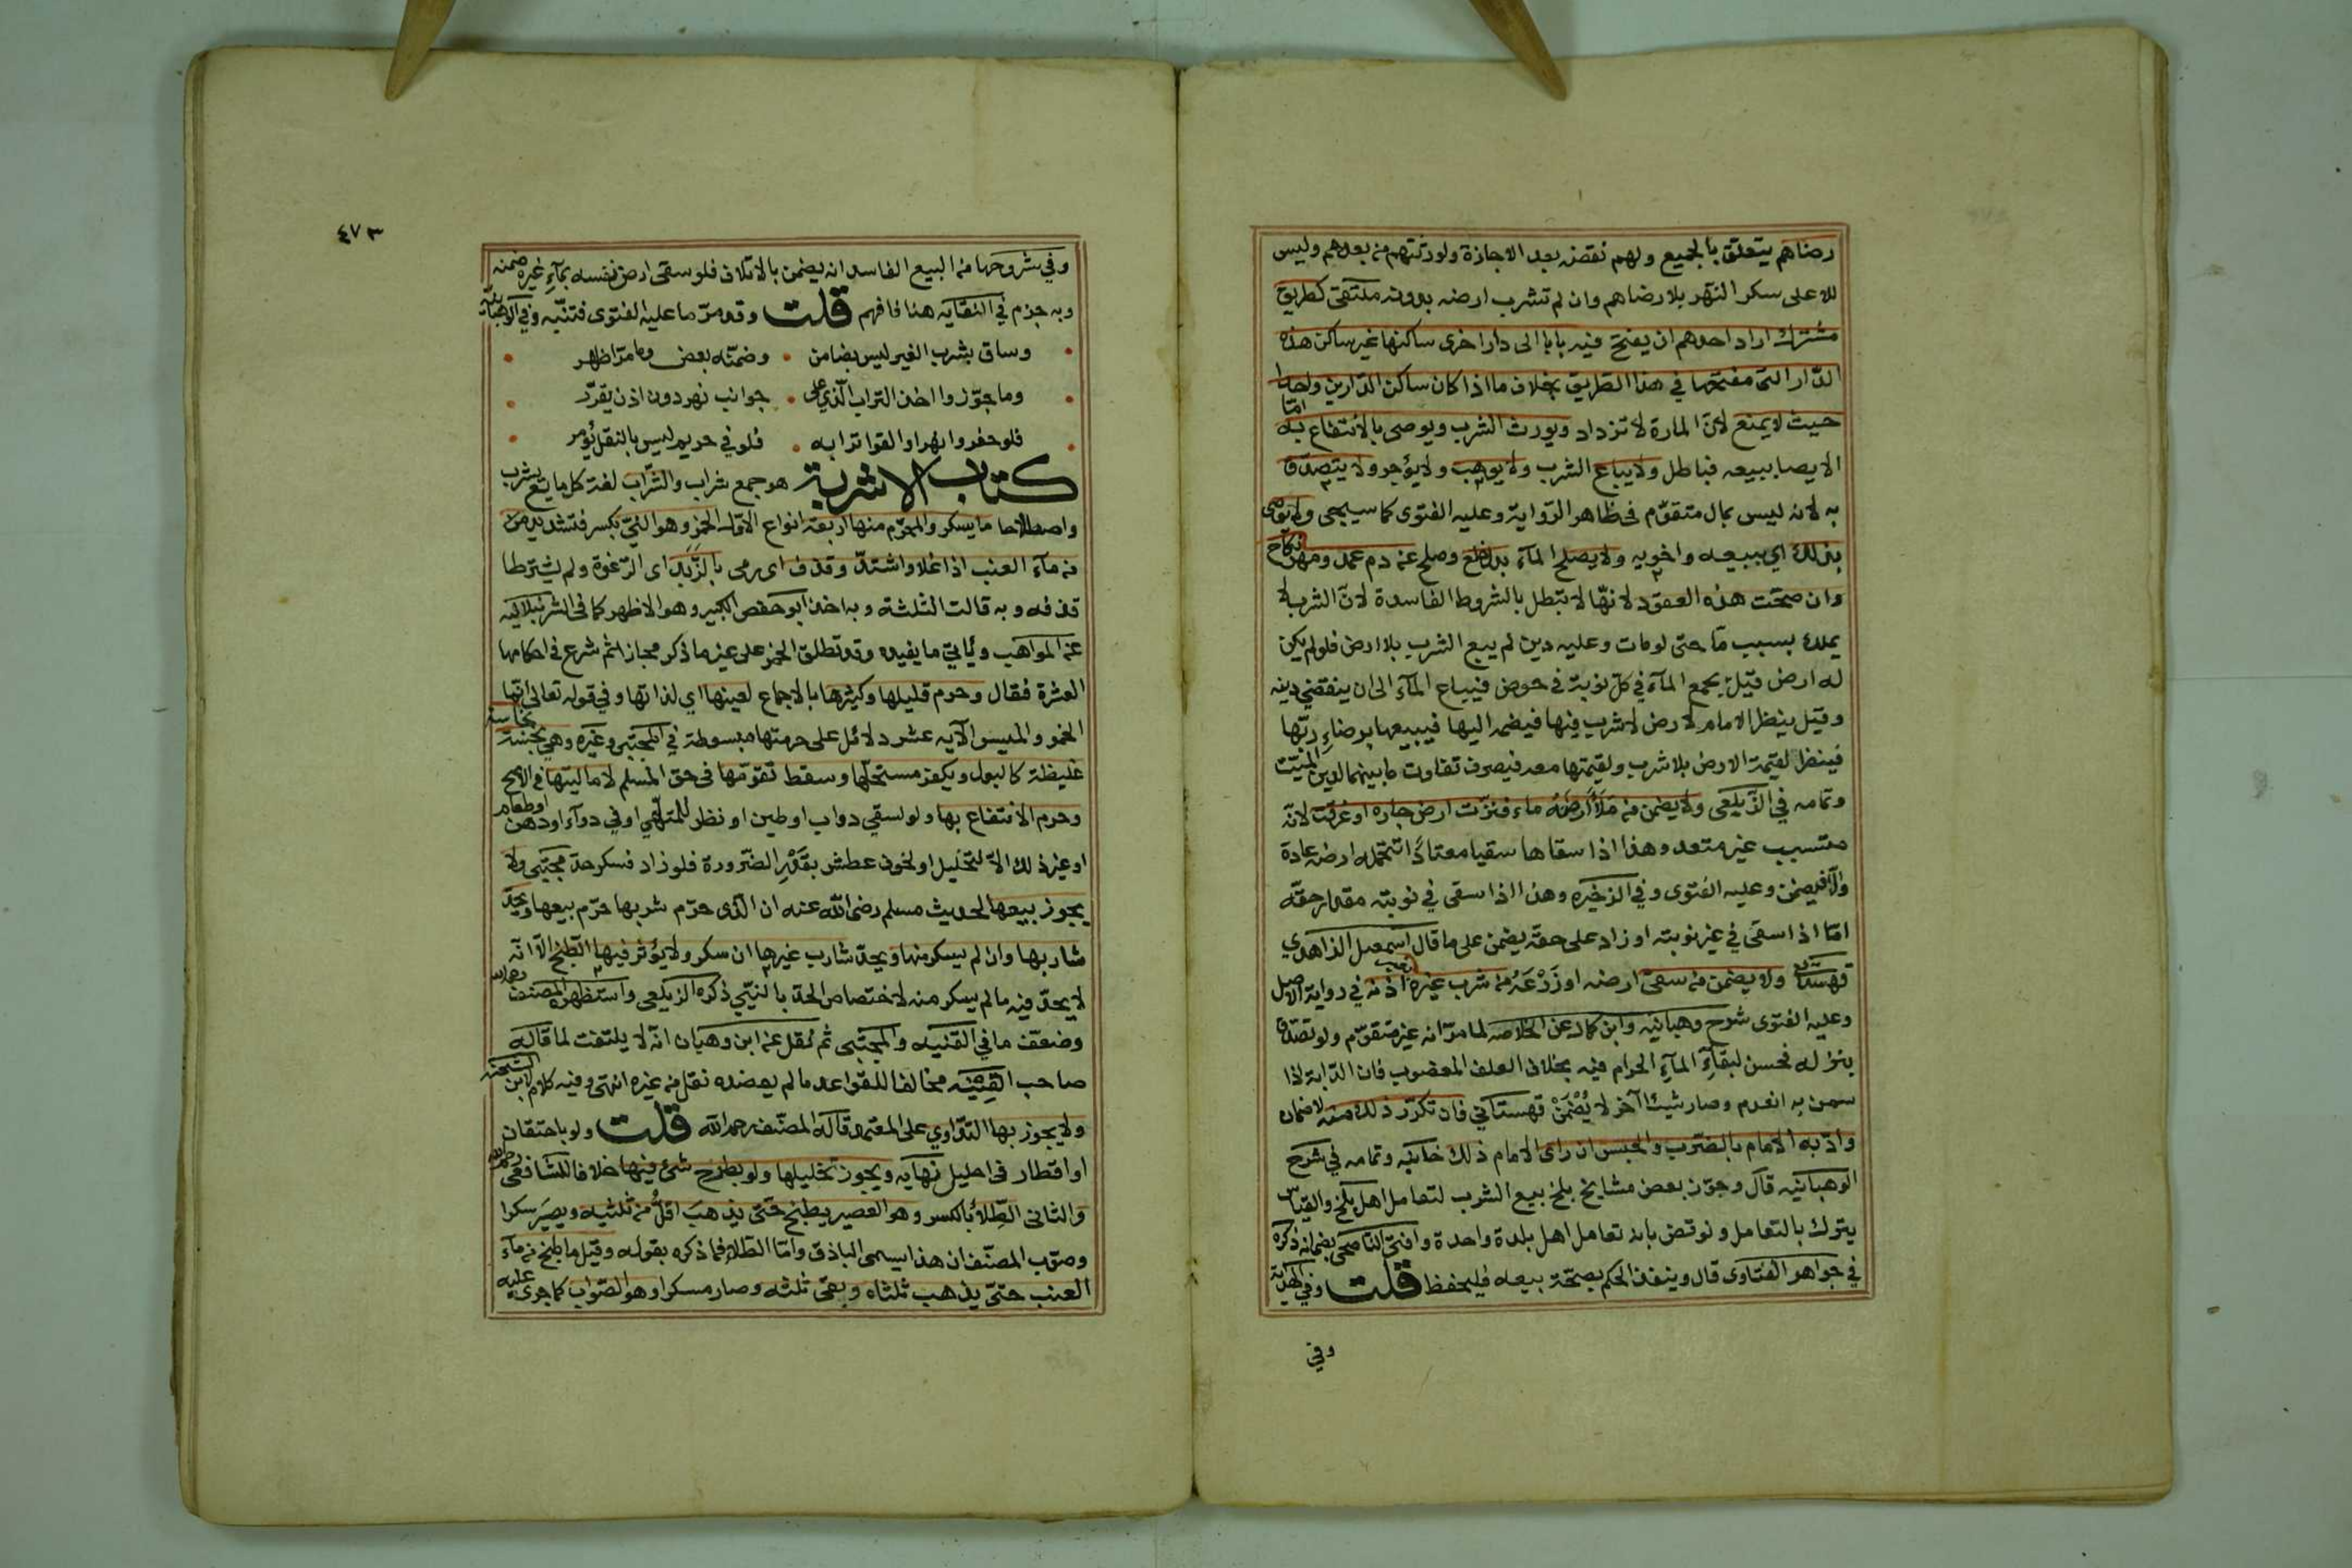 رضاهم يتعلق بالجميع ولهم نقضه بعد الاجازة ولورثتهم من بعدهم وليس
لاهل على سكر النهر بلا رضاهم وان لم تشرب ارضه بدونه ملتقى كطريق
مشترك اراد احدهم ان يفتح فيه بابا الى دار اخرى ساكنها غير ساكن هذه
الدار التى مفتحها في هذا الطريق بخلاف ما اذا كان ساكن الدارين واحدا
حيث لا يمنع لان المارة لا تزداد ويورث الشرب ويوصى بالانتفاع به اما
الايصا ببيعه فباطل ولا يباع الشرب ولا يوهب ولا يؤجر ولا يتصدق
به لانه ليس بمال متقوم فى ظاهر الرواية وعليه الفتوى كما سيجى ولا يوصى
بذلك اي ببيعه واخويه ولا يصلح الماء بدل خلع وصلح عن دم عمد ومهر نكاح
وان صحت هذه العقود لانها لا تبطل بالشروط الفاسدة لان الشرب لا
يملك بسبب ما حتى لو مات وعليه دين لم يبع الشرب بلا ارض فلو لم يكن
له ارض قيل يجمع الماء في كل نوبة فى حوض فيباع الماء الى ان ينقضي دينه
وقيل ينظر الامام لارض لا شرب فيها فيضمه اليها فيبيعها برضاء ربها
فينظر لقيمة الارض بلا شرب ولقيمتها معه فيصرف تفاوت ما بينهما لدين الميت
وتمامه في الزيلعى ولا يضمن من ملأ ارضه ماء فنزت ارض جاره او غرقت لانه
متسبب غير متعد وهذا اذا سقاها سقيا معتادا تتحمله ارضه عادة
والا فيضمن وعليه الفتوى وفي الذخيره وهذا اذا سقى في نوبته مقدار حقه
اما اذا سقى في غير نوبته او زاد على حقه يضمن على ما قال اسمعيل الزاهدي
قهستانى ولا يضمن من سقى ارضه او زرعه من شرب غيره بغير اذنه في رواية الاصل
وعليه الفتوى شرح وهبانيه وابن كمال عن الخلاصه لما مر انه غير متقوم ولو تصدق
بنزله فحسن لبقاء الماء الحرام فيه بخلاف العلف المغصوب فان الدابة اذا
سمن به انعدم وصار شيئا آخر لا يضمن قهستاني فان تكرر ذلك منه لا ضمان
وادبه الامام بالضرب والحبس ان راى الامام ذلك خانيه وتمامه في شرح
الوهبانيه قال وجوز بعض مشايخ بلخ بيع الشرب لتعامل اهل بلخ والقياس
يترك بالتعامل ونوقض بانه تعامل اهل بلدة واحدة وافتى الناصحى بضمانه ذكره
في جواهر الفتاوى قال وينفذ الحكم بصحة بيعه فليحفظ قلت وفي الهداية
وفي
٤٧٣
وفي شروحها من البيع الفاسد انه يضمن بالاتلاف فلو سقى ارض نفسه بماء غيره ضمنه
وبه جزم في النقايه هنا فافهم قلت وقد مر ما عليه الفتوى فتنبه وفي الوهبانية
وساق بشرب الغير ليس بضامن • وضمنه بعض وما مر اظهر
وما جوزوا اخذ التراب الذي على • جوانب نهر دون اذن يقرر
فلو حفروا نهرا والقوا ترابه • فلو في حريم ليس بالنقل يؤمر
كتاب الاشربة هو جمع شراب والشراب لغة كل مايع يشرب
واصطلاحا ما يسكر والمحرم منها اربعة انواع الاول الخمر وهو النيّ بكسر فتشديد من
من ماء العنب اذا غلا واشتد وقذف اى رمى بالزبد اى الرغوة ولم يشترطا
قذفه وبه قالت الثلثة وبه اخذ ابو حفص الكبير وهو الاظهر كما فى الشرنبلاليه
عن المواهب ويأتي ما يفيده وقد تطلق الخمر على غير ما ذكر مجازا ثم شرع فى احكامها
العشرة فقال وحرم قليلها وكثيرها بالاجماع لعينها اي لذاتها وفي قوله تعالى انما
الخمر والميسر الآيه عشر دلائل على حرمتها مبسوطة في المجتبى وغيره وهي نجسة نجاسة
غليظة كالبول ويكفر مستحلها وسقط تقومها فى حق المسلم لا ماليتها في الاصح
وحرم الانتفاع بها ولو لسقي دواب او طين او نظر للتلهي او في دوآء او دهن او طعام
او غير ذلك الا لتخليل او لخوف عطش بقدر الضرورة فلو زاد فسكر حد مجتبى ولا
يجوز بيعها لحديث مسلم رضى الله عنه ان الذى حرم شربها حرم بيعها ويحد
شاربها وان لم يسكر منها ويحد شارب غيرها ان سكر ولا يؤثر فيها الطبخ الا انه
لا يحد فيه ما لم يسكر منه لاختصاص الحد بالنيّي ذكره الزيلعى واستظهره المصنف رحمه الله
وضعف ما في القنيه والمجتبى ثم نقل عن ابن وهبان انه لا يلتفت لما قاله
صاحب القنيه مخالفا للقواعد ما لم يعضده نقل من غيره انتهى وفيه كلام لابن الشحنه
ولا يجوز بها التداوي على المعتمد قاله المصنف رحمه الله قلت ولو باحتقان
او اقطار فى احليل نهايه ويجوز تخليلها ولو بطرح شئ فيها خلافا للشافعى رحمه الله
والثانى الطلاء بالكسر وهو العصير يطبخ حتى يذهب اقل من ثلثيه ويصير مسكرا
وصوب المصنف ان هذا يسمى الباذق واما الطلاء فما ذكره بقوله وقيل ما طبخ من ماء
العنب حتى يذهب ثلثاه وبقى ثلثه وصار مسكرا وهو الصواب كما جرى عليه